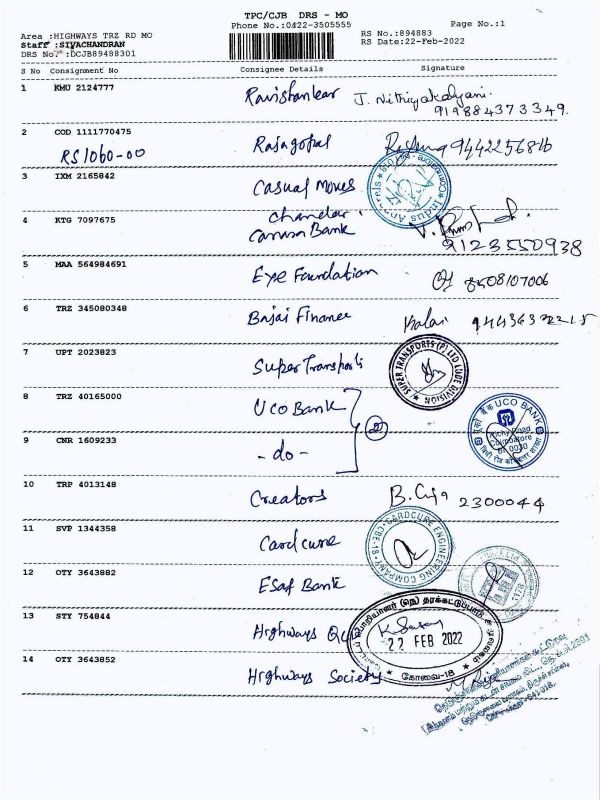 TPC/CJB DRS - MO
Phone No.:0422-3505555
Page No.:1
Area :HIGHWAYS TRZ RD MO
RS No.:894883
Staff :SIVACHANDRAN
RS Date:22-Feb-2022
DRS No. :DCJB89488301
S No Consignment No Consignee Details Signature
1 KMU 2124777 Ravishankar J. Nithiyakalyani.
919884373349.
2 COD 1111770475 Rajagopal 9442256816
RS 1060-00
3 IXM 2165842 Casual Moves
Indus Apparels
4 KTG 7097675 Chandar
Canara Bank
9123550938
5 MAA 564984691 Eye Foundation 8508107006
6 TRZ 345080348 Bajaj Finance Kalai
7 UPT 2023823 Super Transports
SUPER TRANSPORTS (P) LTD LUDE DIVISION
8 TRZ 40165000 UCO Bank
2
UCO BANK
Trichy Road
Coimbatore
9 CNR 1609233 - do -
10 TRP 4013148 Creators 2300044
11 SVP 1344358 Cardcure
CARDCURE ENGINEERING COMPANY CBE-18
12 OTY 3643882 ESAF Bank
13 STY 754844 Highways
22 FEB 2022
கோவை-18
14 OTY 3643852 Highways Society